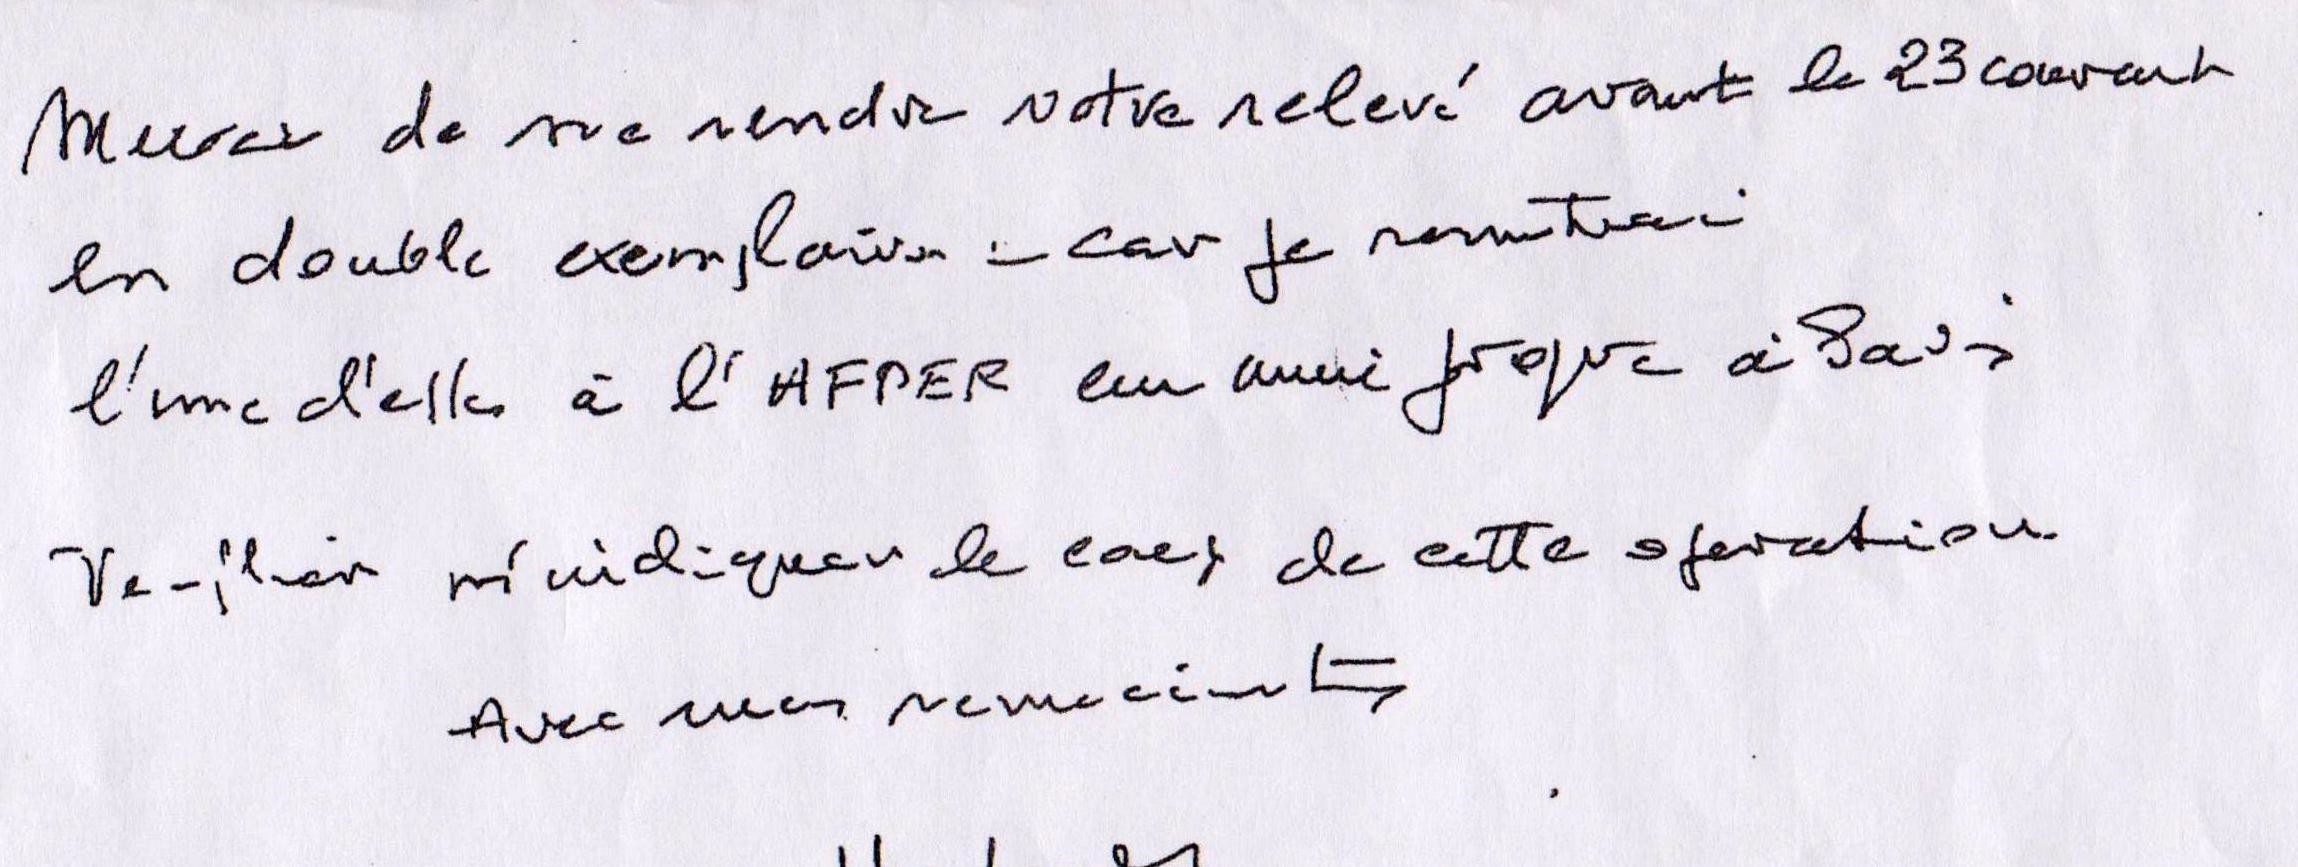 Merci de me rendre votre relevé avant le 23 courant
en double exemplaire - car je remettrai
l'une d'elles à l'AFPER en main propre à Paris
Veuillez m'indiquer le coût de cette operation
Avec mes remerciements